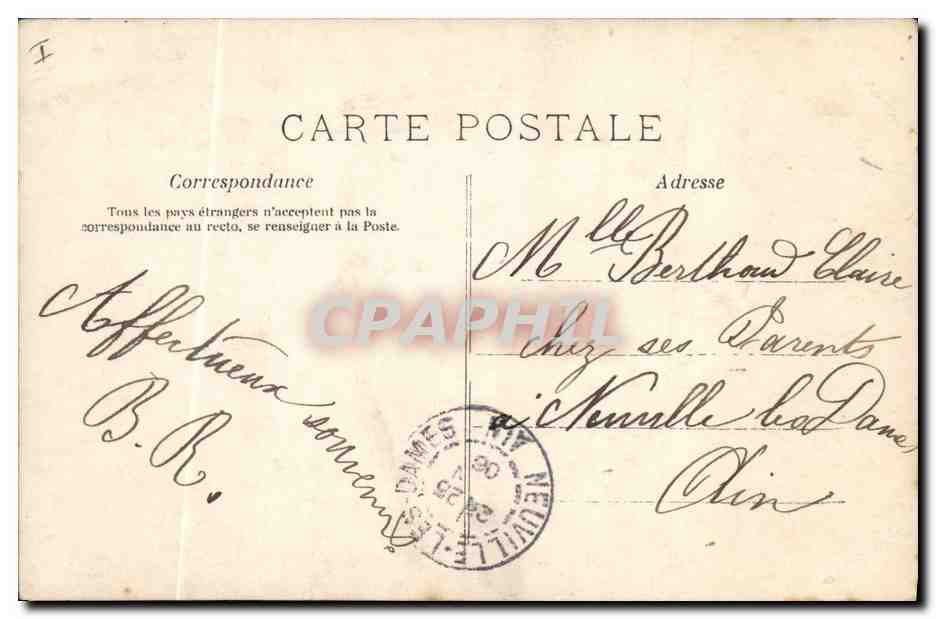 I
CARTE POSTALE
Correspondance
Tous les pays étrangers n'acceptent pas la
correspondance au recto, se renseigner à la Poste.
Affectueux souvenir
B. R.
Adresse
Mlle Berthoud Claire
chez ses Parents
à Neuville les Dames
Ain
NEUVILLE-LES-DAMES AIN
CPAPHIL